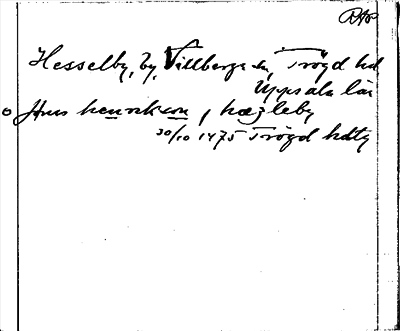 RAp
Hesselby, by, Villberga sn, Trögd hd
Uppsala län
o Jöns henrikson, hæzleby
30/10 1475 Trögd hdtg